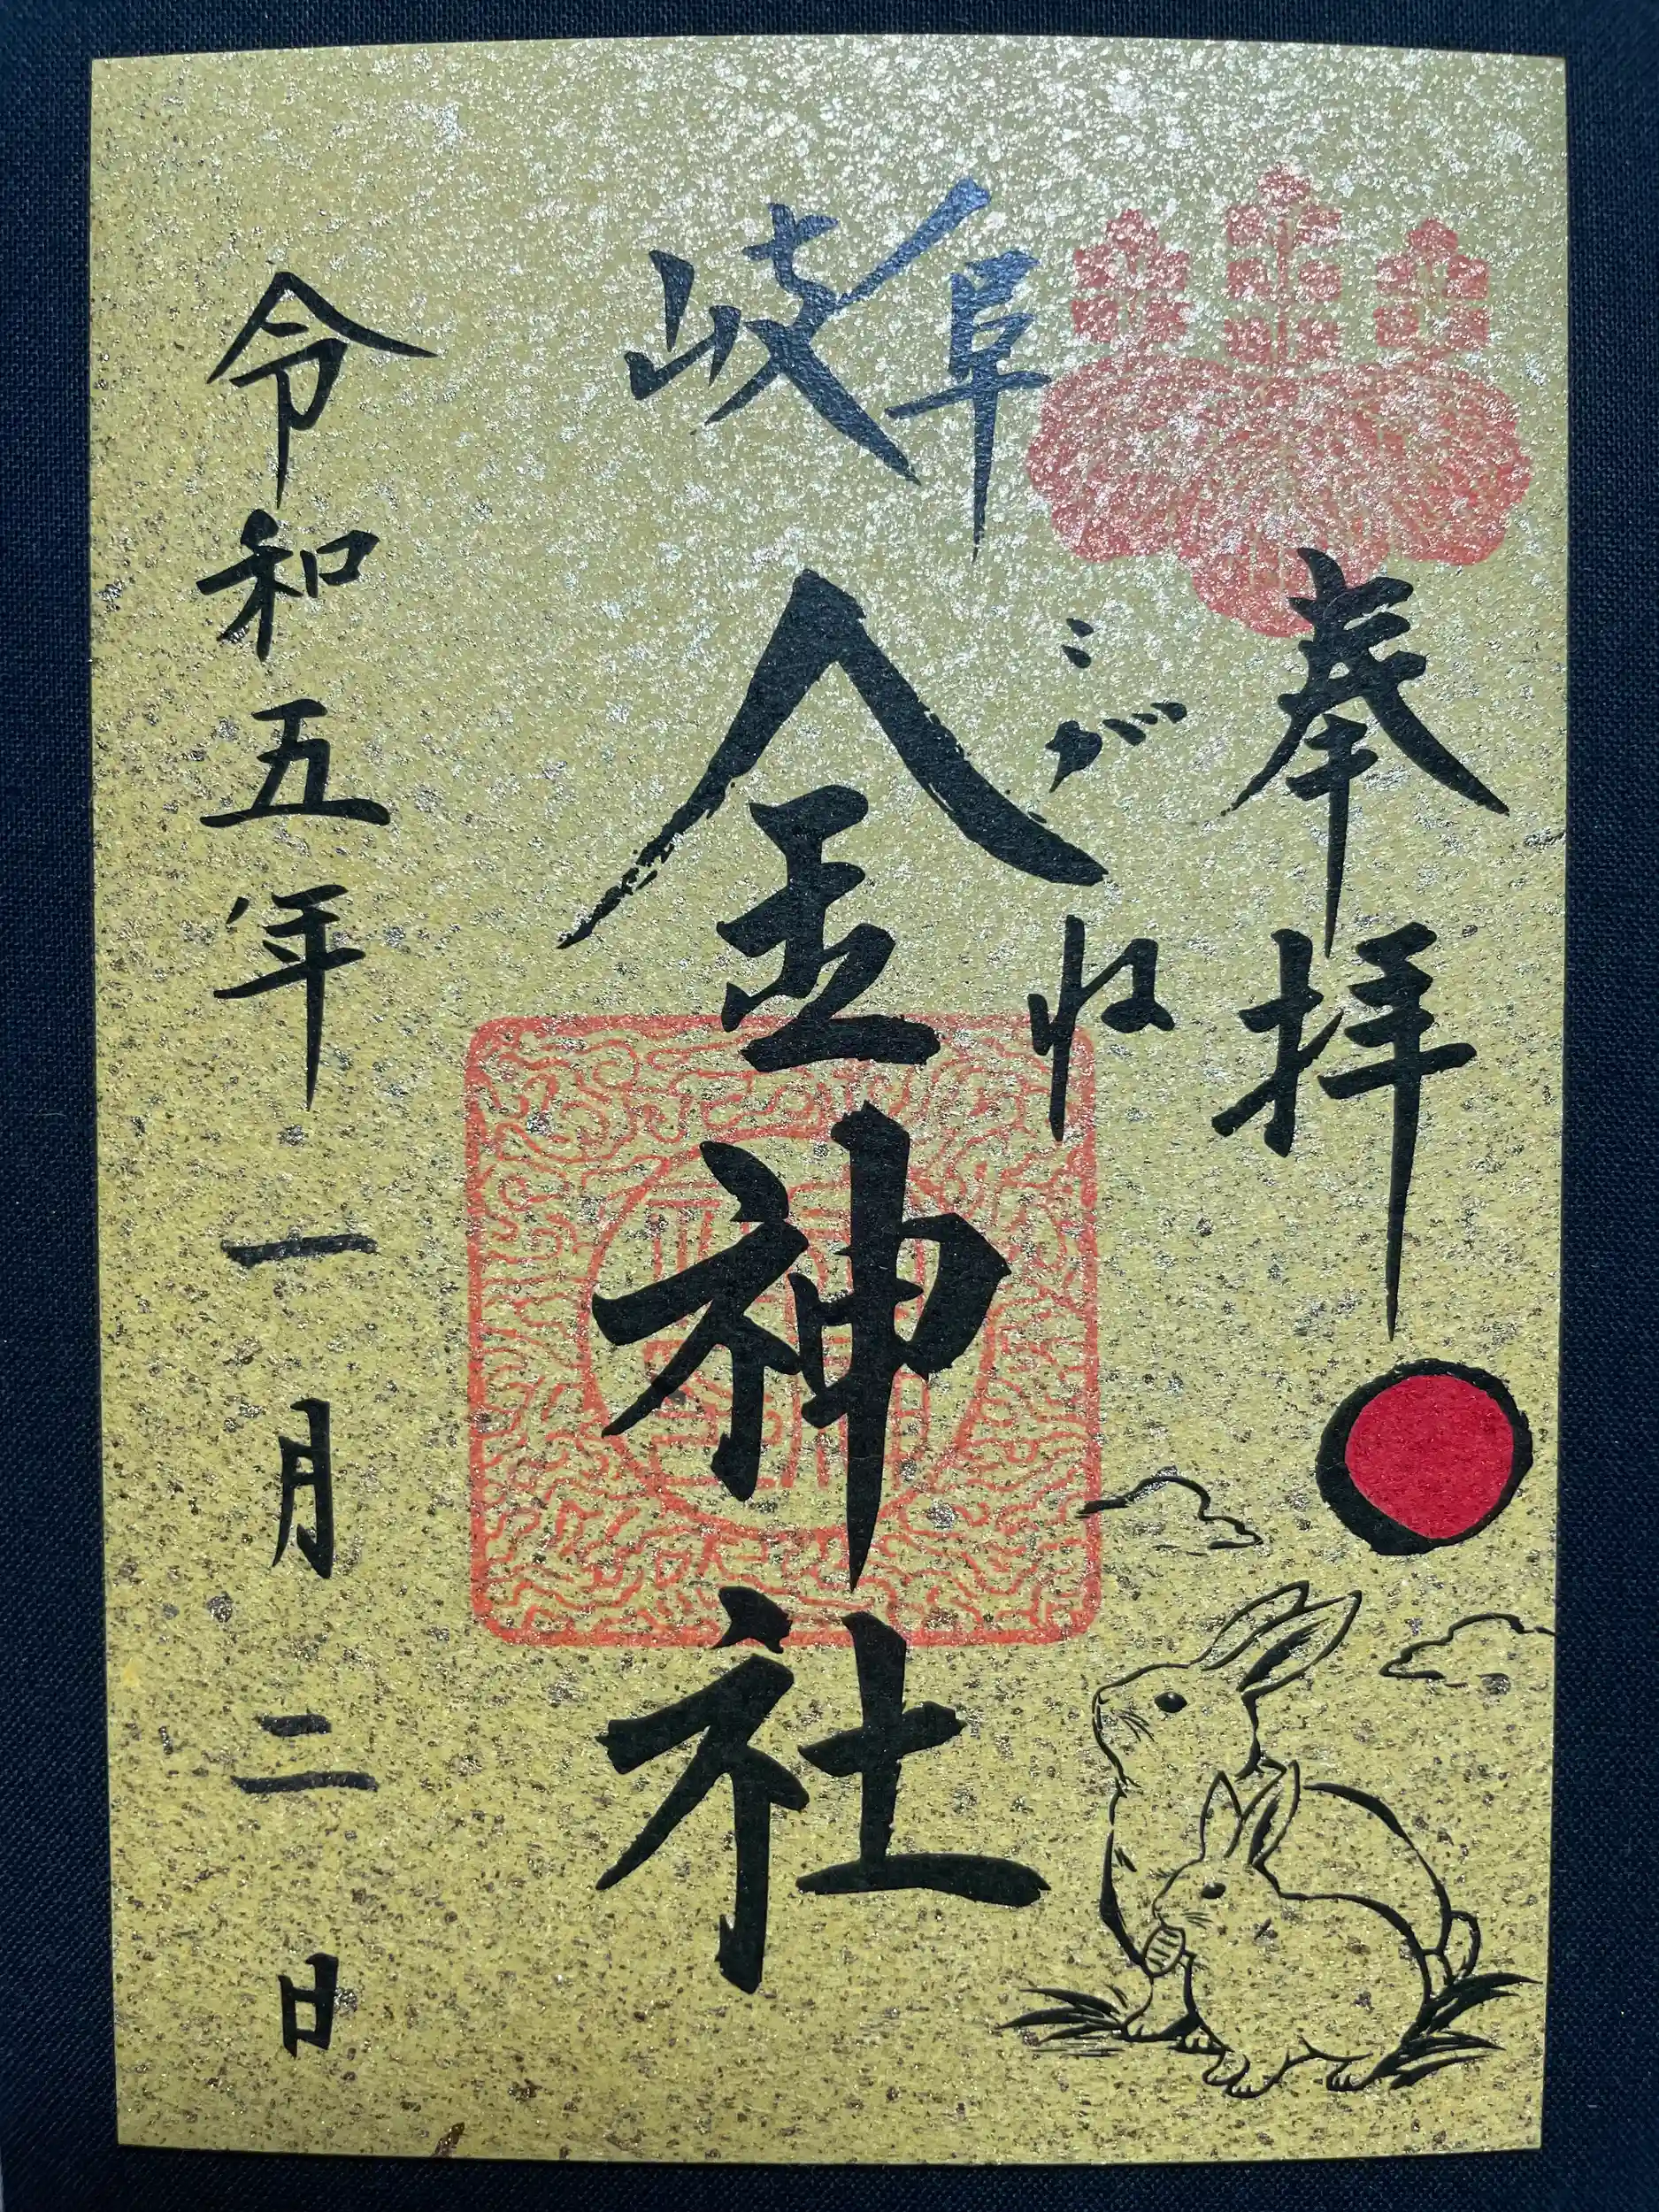 奉拝
岐阜
こがね
金神社
令和五年一月二日